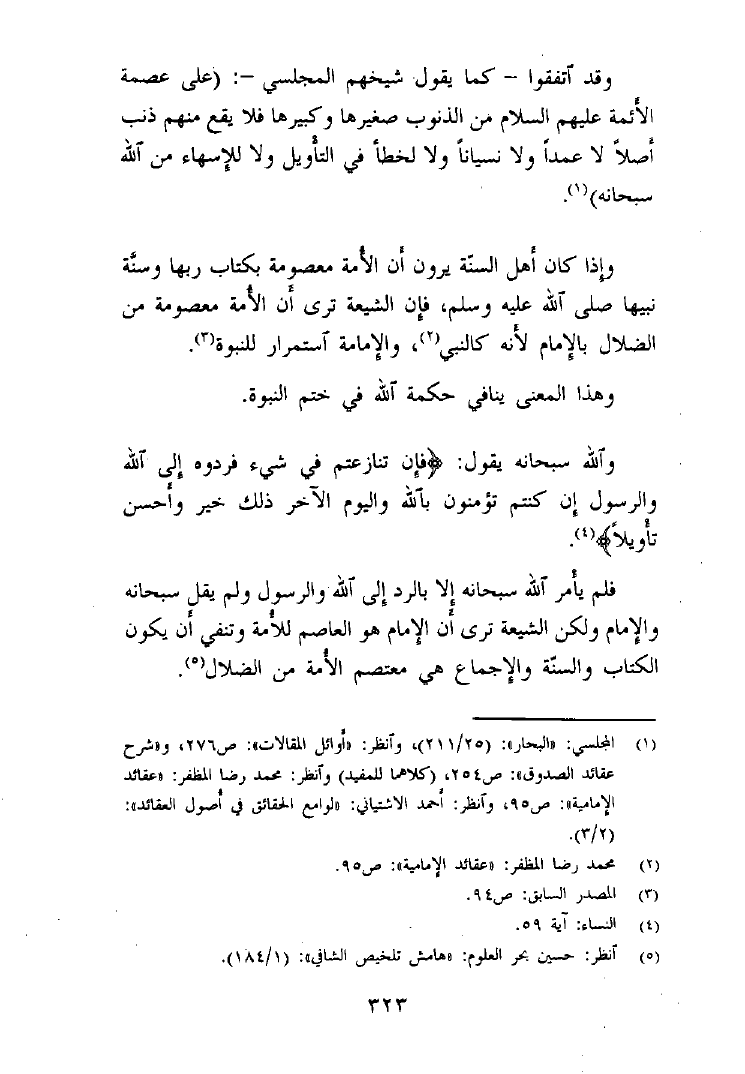 وقد ٱتفقوا - كما يقول شيخهم المجلسي -: (على عصمة
الأئمة عليهم السلام من الذنوب صغيرها وكبيرها فلا يقع منهم ذنب
أصلاً لا عمداً ولا نسياناً ولا لخطأ في التأويل ولا للإسهاء من ٱلله
سبحانه)(١).
وإذا كان أهل السنّة يرون أن الأمة معصومة بكتاب ربها وسنَّة
نبيها صلى ٱلله عليه وسلم، فإن الشيعة ترى أن الأمة معصومة من
الضلال بالإمام لأنه كالنبي(٢)، والإمامة ٱستمرار للنبوة(٣).
وهذا المعنى ينافي حكمة ٱلله في ختم النبوة.
وٱلله سبحانه يقول: ﴿فإن تنازعتم في شيء فردوه إلى ٱلله
والرسول إن كنتم تؤمنون بٱلله واليوم الآخر ذلك خير وأحسن
تأويلاً﴾(٤).
فلم يأمر ٱلله سبحانه إلا بالرد إلى ٱلله والرسول ولم يقل سبحانه
والإمام ولكن الشيعة ترى أن الإمام هو العاصم للأمة وتنفي أن يكون
الكتاب والسنّة والإجماع هي معتصم الأمة من الضلال(٥).
(١) المجلسي: «البحار»: (٢١١/٢٥)، وٱنظر: «أوائل المقالات»: ص٢٧٦، و«شرح
عقائد الصدوق»: ص٢٥٤، (كلاهما للمفيد) وٱنظر: محمد رضا المظفر: «عقائد
الإمامية»: ص٩٥، وٱنظر: أحمد الاشتياني: «لوامع الحقائق في أصول العقائد»:
(٣/٢).
(٢) محمد رضا المظفر: «عقائد الإمامية»: ص٩٥.
(٣) المصدر السابق: ص٩٤.
(٤) النساء: آية ٥٩.
(٥) ٱنظر: حسين بحر العلوم: «هامش تلخيص الشافي»: (١٨٤/١).
٣٢٣